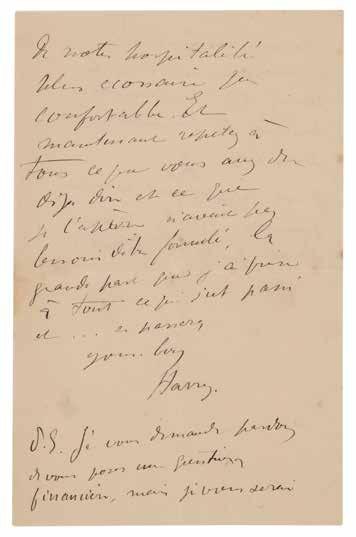 de notre hospitalité
plus ecossaire que
confortable. Et
maintenant repetez à
tous ce que vous avez du
déja dire et ce que
je n'avais pas
besoin dite, la
grande part que j'ai prise
à tout ce qui s'est passé
et ... se passera
your boy
Harry.
P.S. Je vous demande pardon
de vous poser une question
financière, mais je vous serai